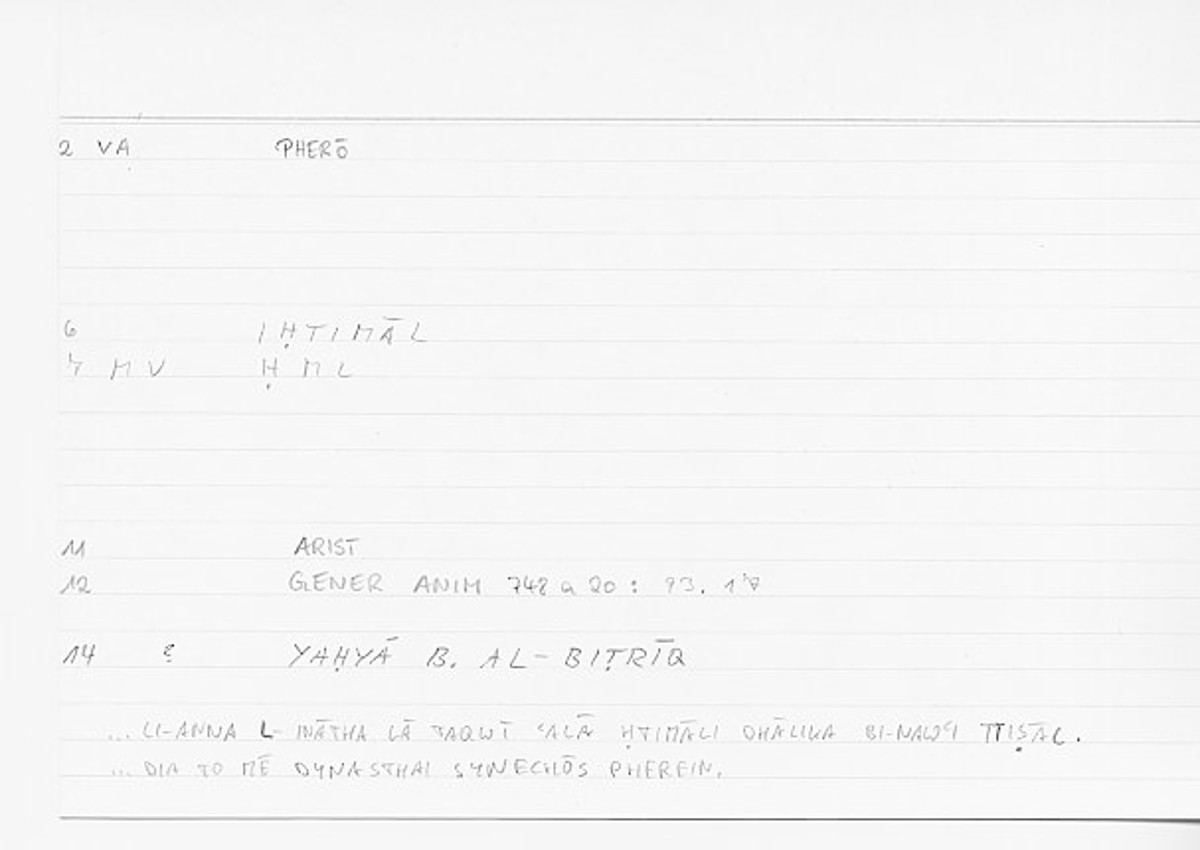 2 VẠ PHERŌ
6 IḤTIMĀL
7 M V Ḥ M L
11 ARIST
12 GENER ANIM 748 a 20 : 93.
14 YAḤYĀ B. AL-BIṬRĪQ
... LI-ANNA L-INĀTHA LĀ TAQWĪ ʿALĀ ḤTIMĀLI DHĀLIKA BI-NAWʿI TTIṢĀL.
... DIA TO MĒ DYNASTHAI SYNECHŌS PHEREIN.